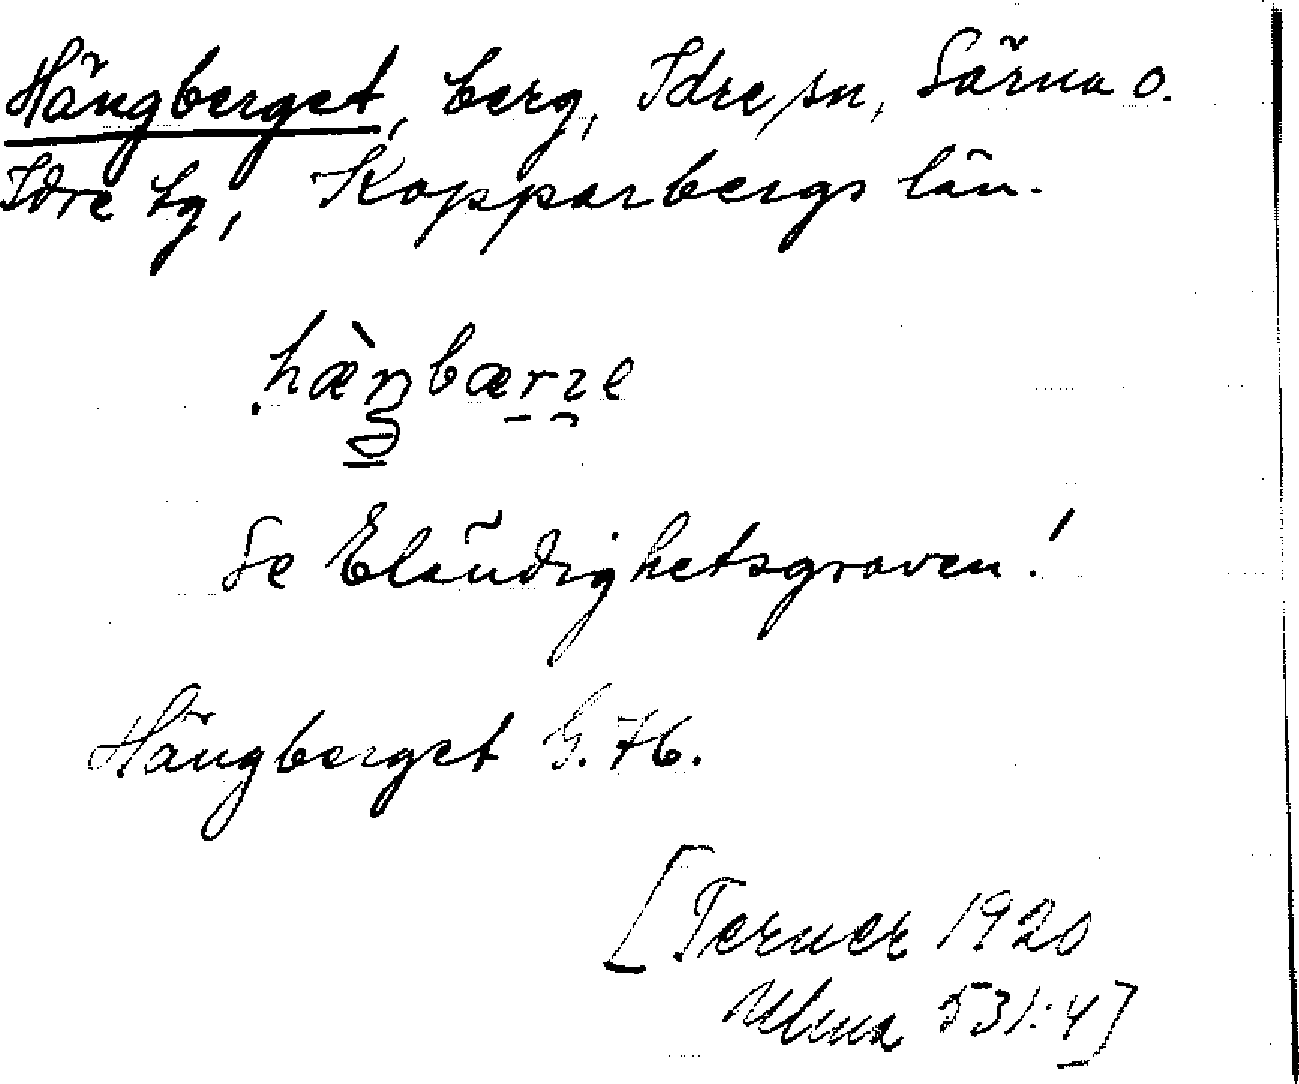 Hängberget, berg, Idre sn, Särna o.
Idre tg, Kopparbergs län.
Se Eländighetsgraven!
Hängberget G. 76.
[Terner 1920
Ulma 531:4]